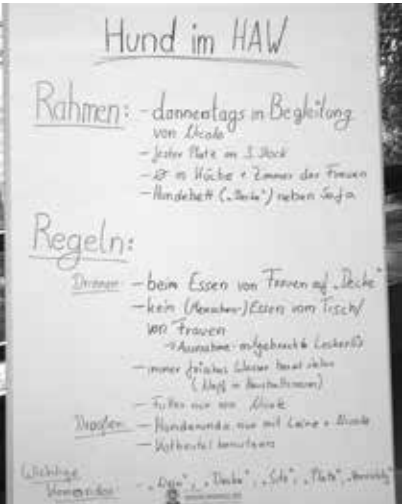 Hund im HAW
Rahmen: - donnerstags in Begleitung
von Nicole
- fester Platz im 3. Stock
- in Küche + Zimmer der Frauen
- Hundebett („Decke“) neben Sofa
Regeln:
Drinnen - beim Essen von Frauen auf „Decke“
- kein (Menschen-) Essen vom Tisch/
von Frauen
→ Ausnahme: mitgebrachte Leckerlis
- immer frisches Wasser bereit stellen
(Napf = Haushaltsraum)
- Futter nur von Nicole
Draußen - Hunderunde nur mit Leine + Nicole
- Kotbeutel benutzen
Wichtige
Kommandos: - „Nein“, „Decke“, „Sitz“, „Platz“,